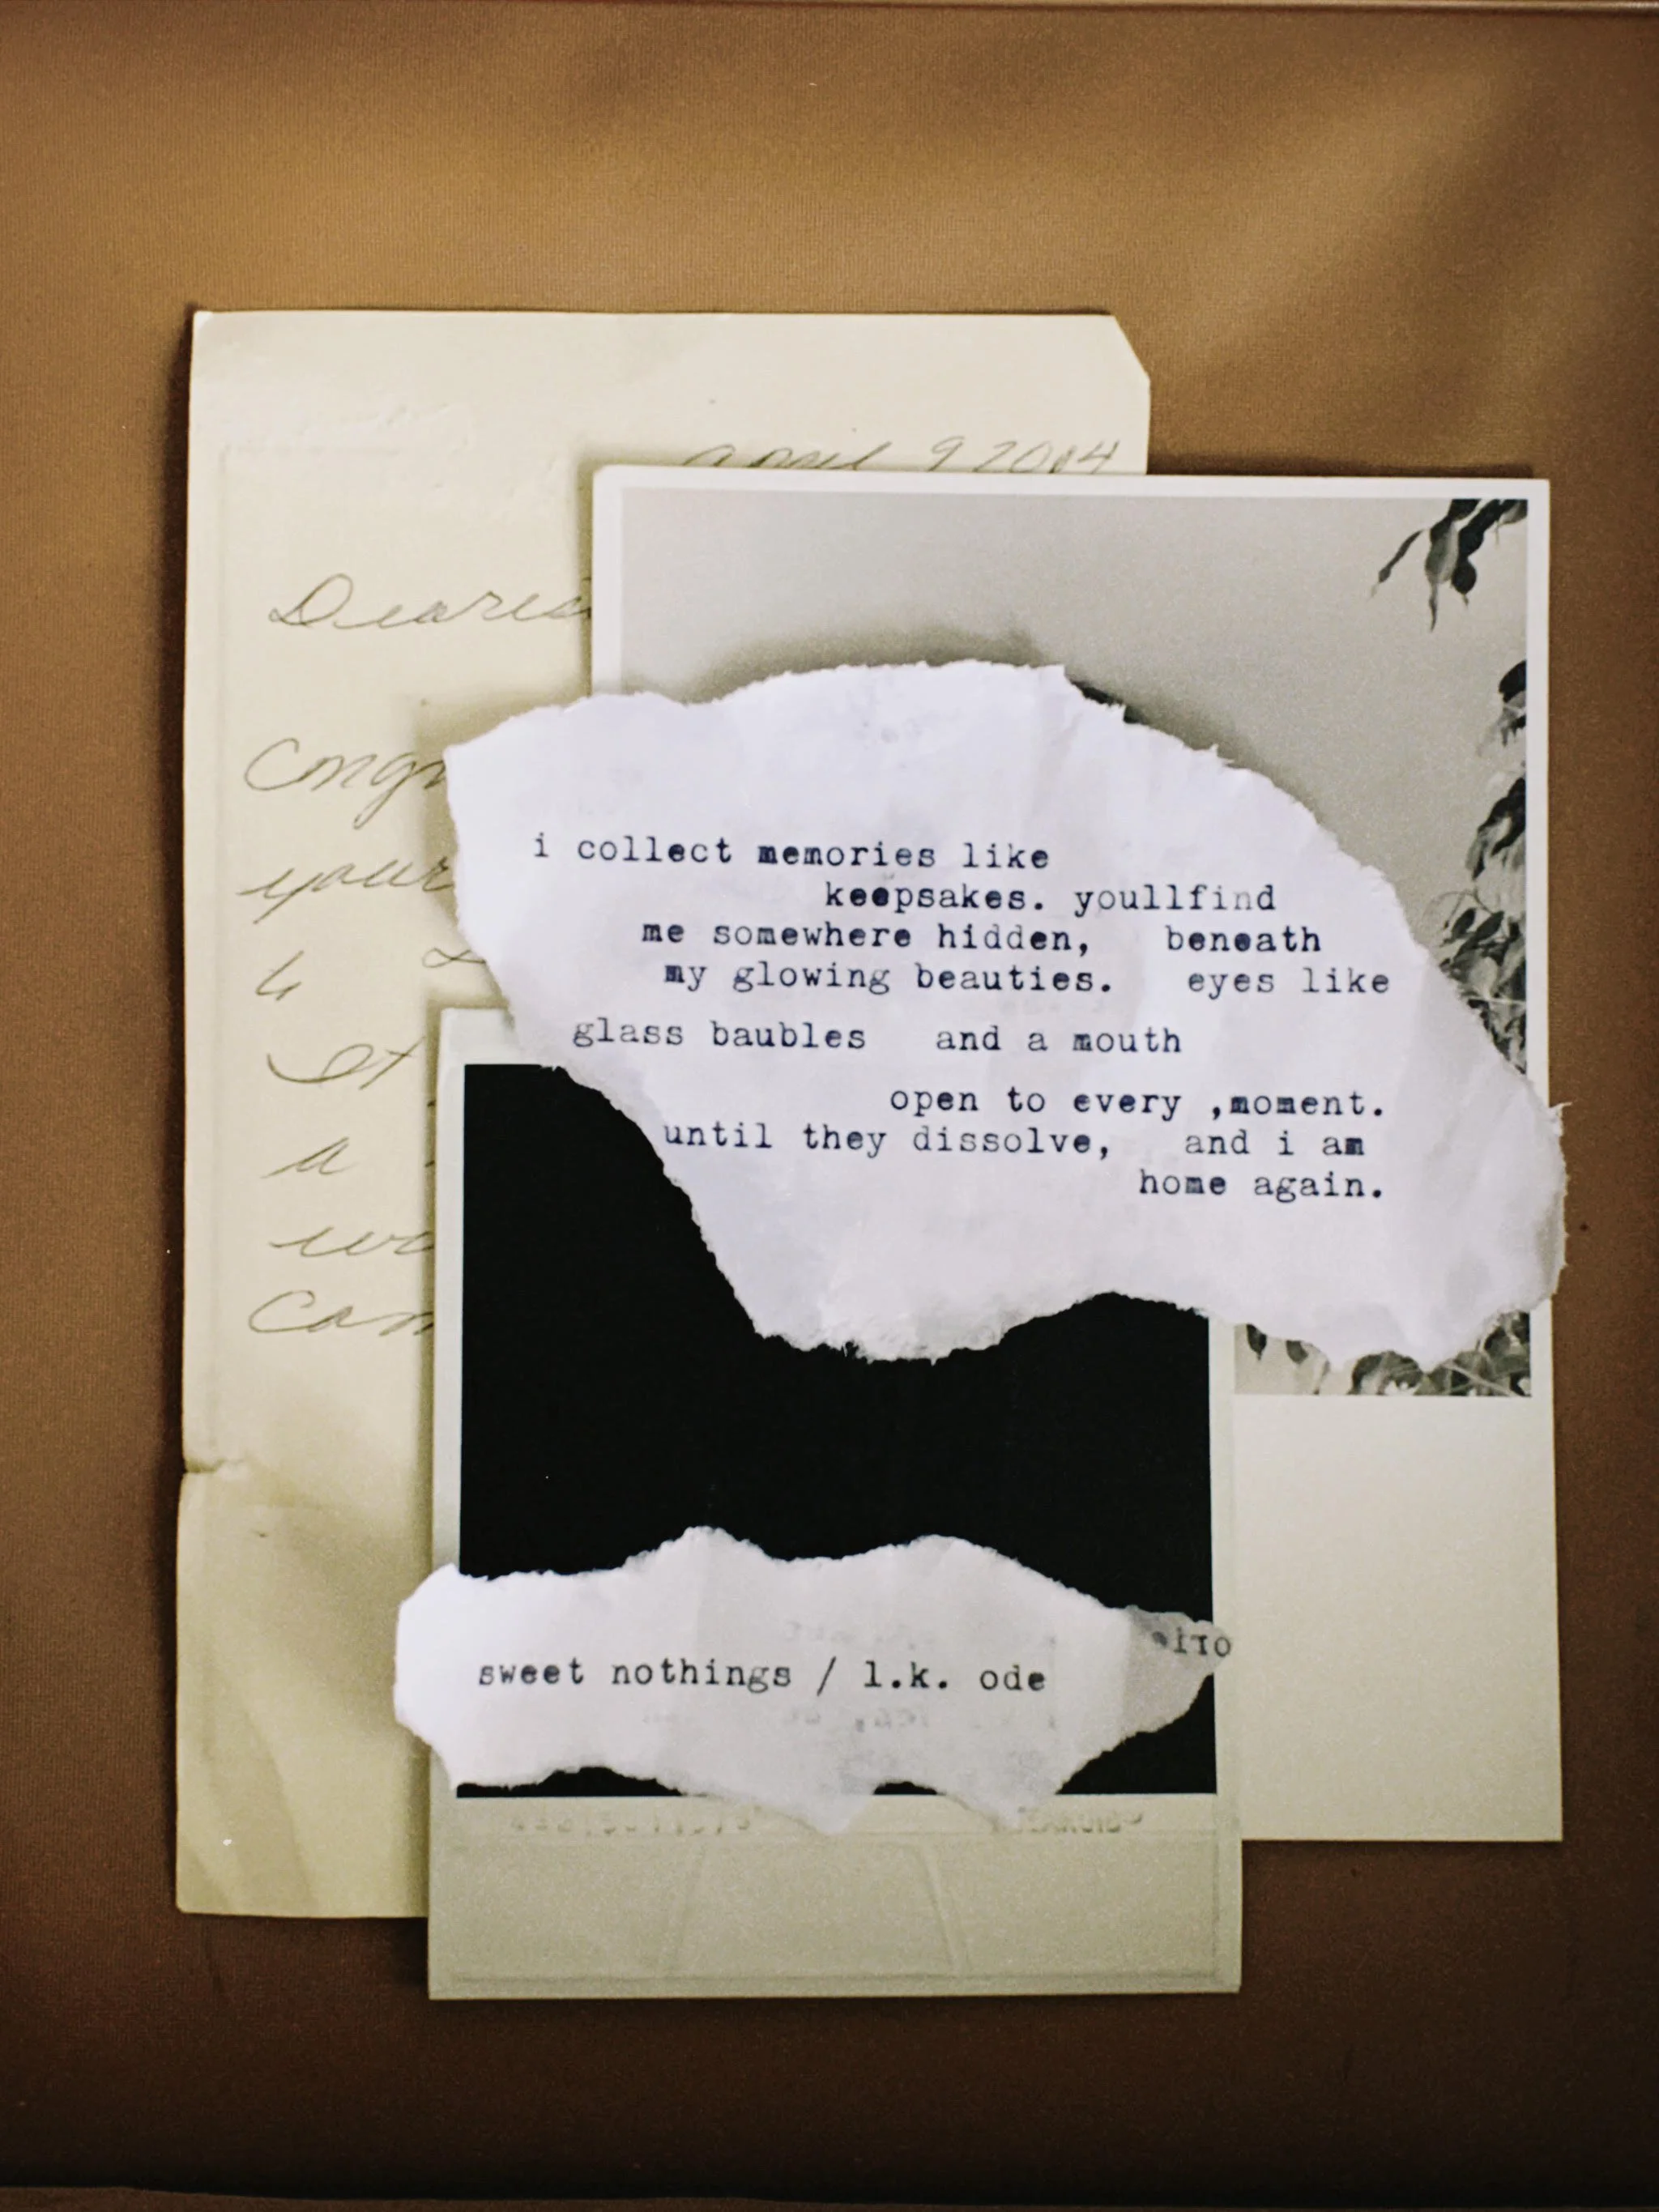 april 9 2014
your
a
i collect memories like
keepsakes. youllfind
me somewhere hidden, beneath
my glowing beauties. eyes like
glass baubles and a mouth
open to every ,moment.
until they dissolve, and i am
home again.
sweet nothings / l.k. ode